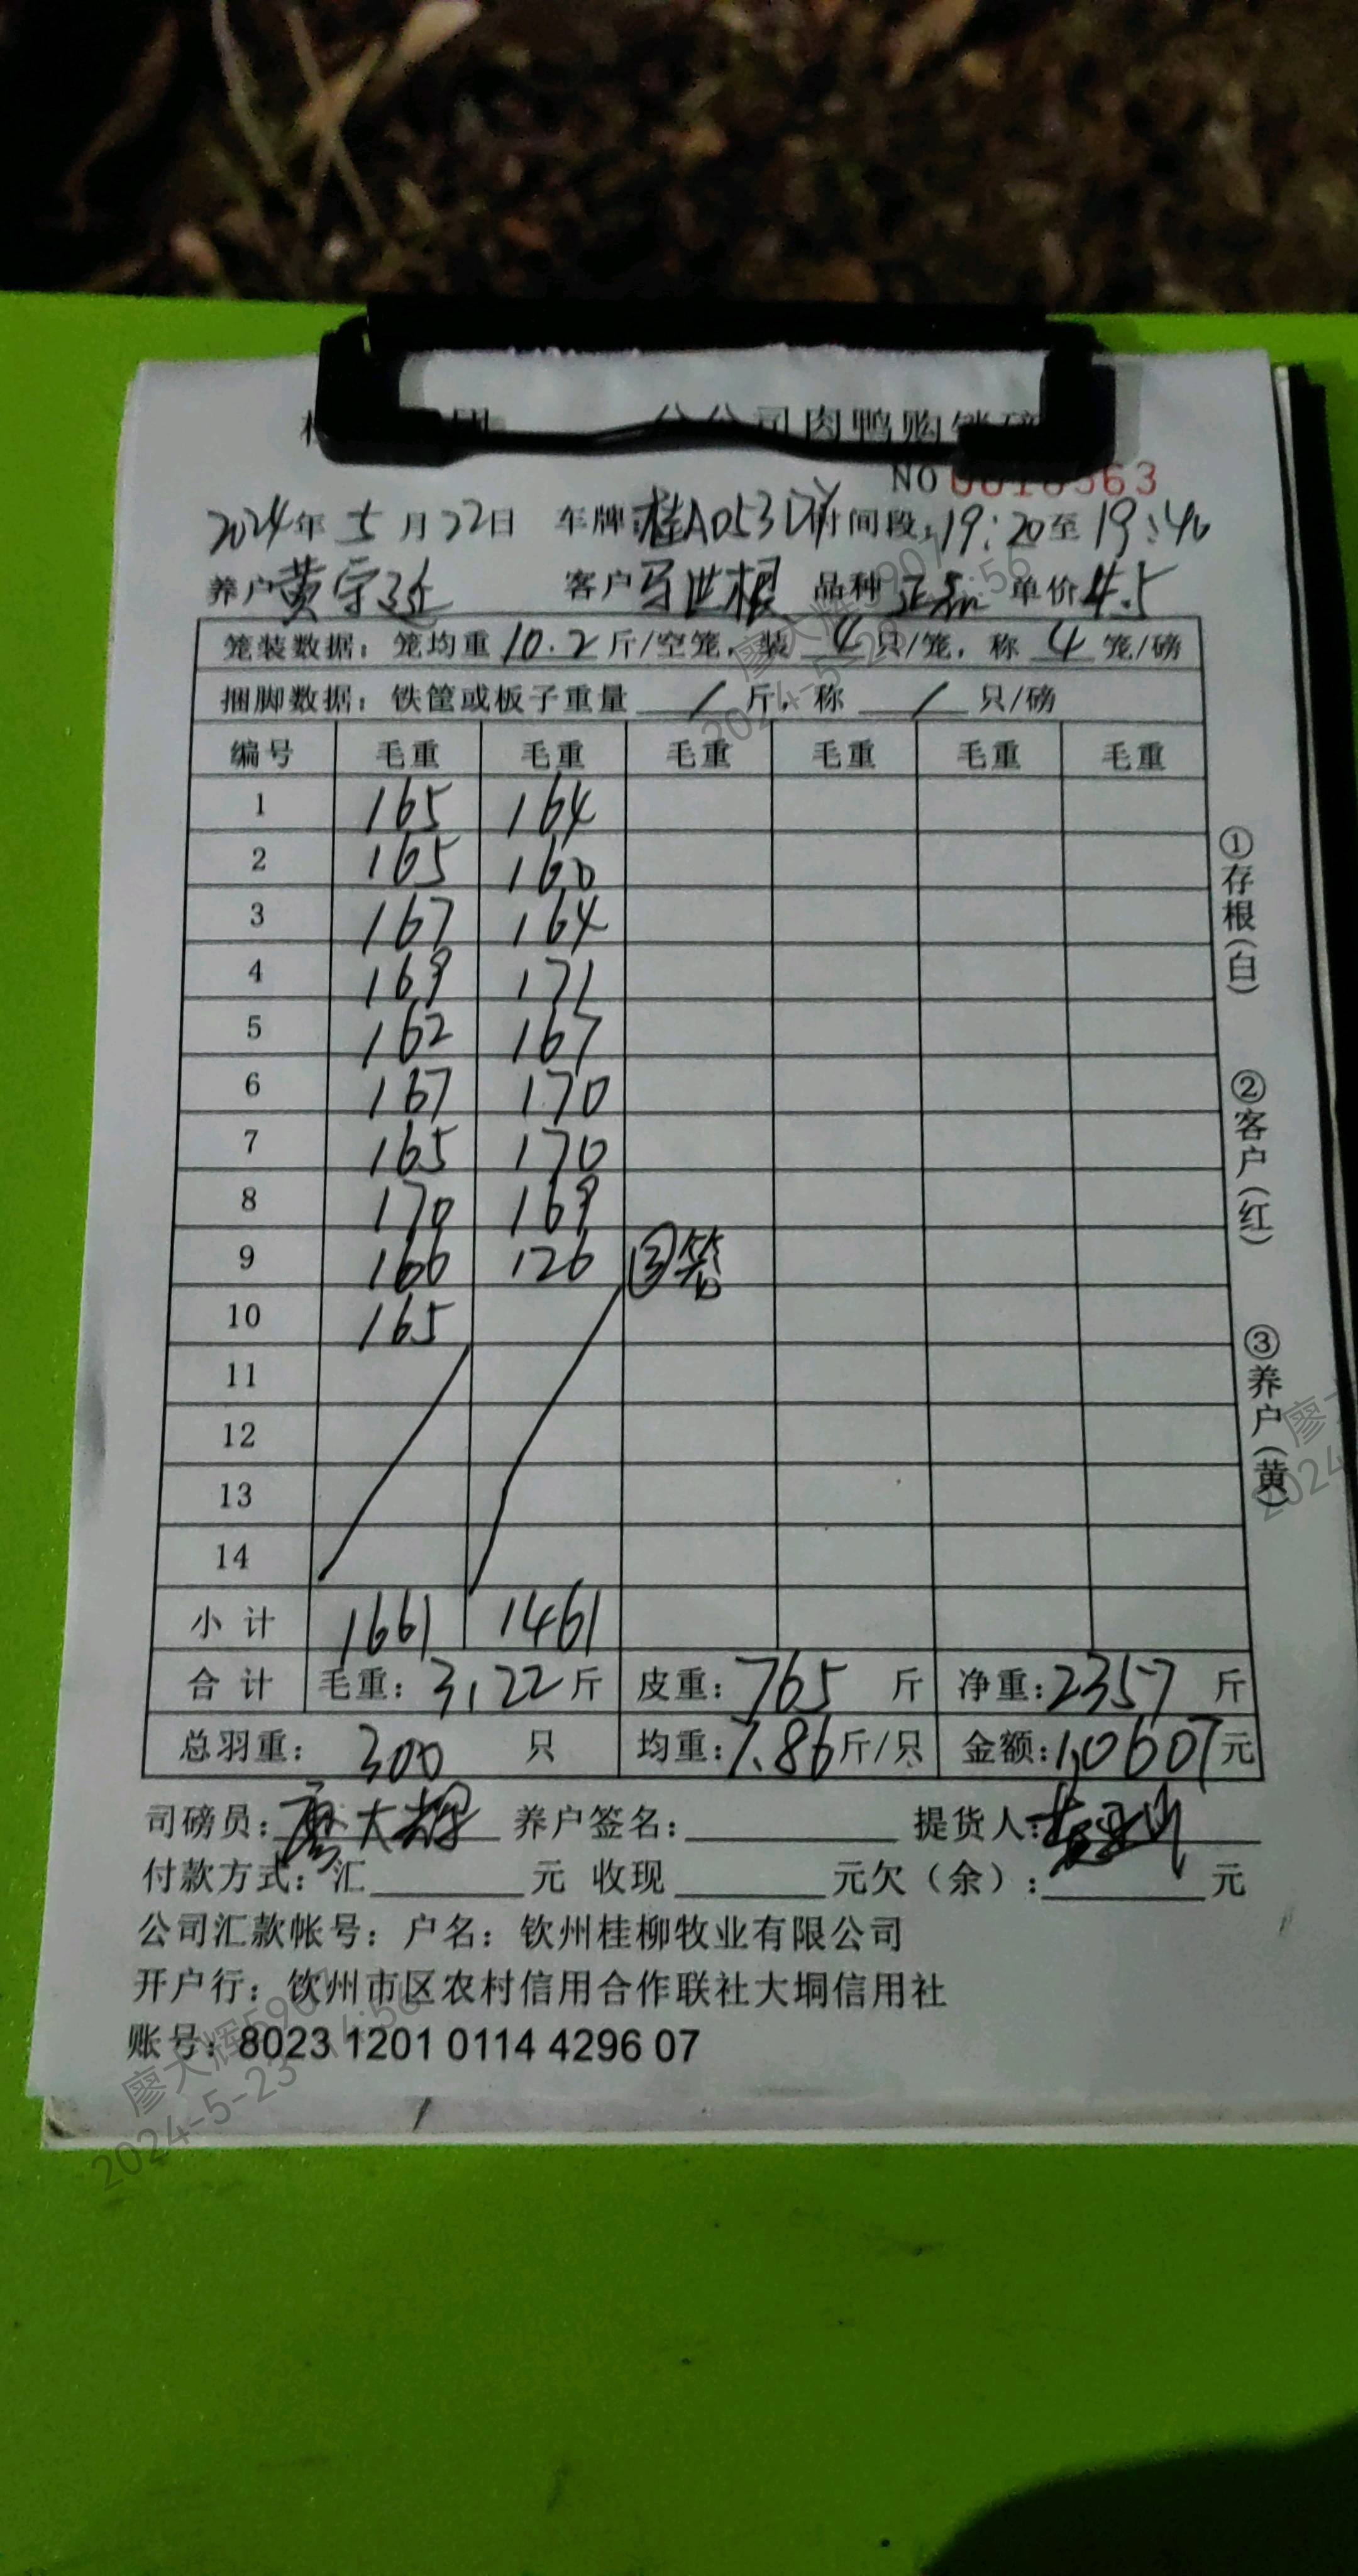 分公司肉鸭购销磅
NO 0018563
2024年 5月22日 车牌:桂A053DY时间段:19:20至19:40
养户黄宗廷 客户马世根 品种 单价4.5
笼装数据：笼均重10.2斤/空笼，装4只/笼，称4笼/磅
捆脚数据：铁筐或板子重量 / 斤，称 / 只/磅
编号 毛重 毛重 毛重 毛重 毛重 毛重
1 165 164
2 165 160
3 167 164
4 169 171
5 162 167
6 167 170
7 165 170
8 170 169
9 166 126 ③笼
10 165
11
12
13
14
小计 1661 1461
合计 毛重：3122斤 皮重：765斤 净重：2357斤
总羽重：300只 均重：7.86斤/只 金额：10607元
司磅员：廖大辉 养户签名： 提货人：
付款方式：汇 元 收现 元欠（余）： 元
公司汇款帐号：户名：钦州桂柳牧业有限公司
开户行：钦州市区农村信用合作联社大垌信用社
账号：8023 1201 0114 4296 07
①存根（白）
②客户（红）
③养户（黄）
廖大辉5907
2024-5-23